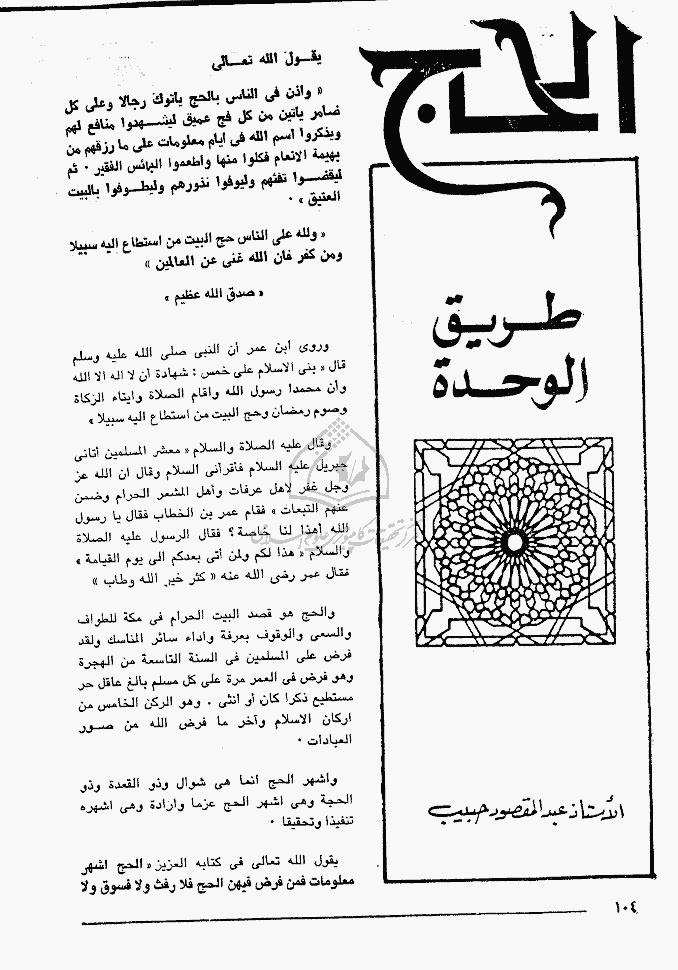 الحج
طريق
الوحدة
الأستاذ عبد المقصود حبيب
يقول الله تعالى
« واذن فى الناس بالحج يأتوك رجالا وعلى كل
ضامر يأتين من كل فج عميق ليشهدوا منافع لهم
ويذكروا اسم الله فى أيام معلومات على ما رزقهم من
بهيمة الانعام فكلوا منها وأطعموا البائس الفقير · ثم
ليقضوا تفثهم وليوفوا نذورهم وليطوفوا بالبيت
العتيق » ·
« ولله على الناس حج البيت من استطاع اليه سبيلا
ومن كفر فان الله غنى عن العالمين »
« صدق الله عظيم »
وروى ابن عمر أن النبى صلى الله عليه وسلم
قال « بنى الاسلام على خمس : شهادة أن لا اله الا الله
وأن محمدا رسول الله واقام الصلاة وايتاء الزكاة
وصوم رمضان وحج البيت من استطاع اليه سبيلا »
وقال عليه الصلاة والسلام « معشر المسلمين أتانى
جبريل عليه السلام فأقرأنى السلام وقال ان الله عز
وجل غفر لاهل عرفات وأهل المشعر الحرام وضمن
عنهم التبعات » فقام عمر بن الخطاب فقال يا رسول
الله أهذا لنا خاصة ؟ فقال الرسول عليه الصلاة
والسلام « هذا لكم ولمن أتى بعدكم الى يوم القيامة »
فقال عمر رضى الله عنه « كثر خير الله وطاب »
والحج هو قصد البيت الحرام فى مكة للطواف
والسعى والوقوف بعرفة وأداء سائر المناسك ولقد
فرض على المسلمين فى السنة التاسعة من الهجرة
وهو فرض فى العمر مرة على كل مسلم بالغ عاقل حر
مستطيع ذكرا كان أو انثى . وهو الركن الخامس من
اركان الاسلام وآخر ما فرض الله من صور
العبادات ·
واشهر الحج انما هى شوال وذو القعدة وذو
الحجة وهى اشهر الحج عزما وارادة وهى اشهره
تنفيذا وتحقيقا ·
يقول الله تعالى فى كتابه العزيز « الحج اشهر
معلومات فمن فرض فيهن الحج فلا رفث ولا فسوق ولا
١٠٤